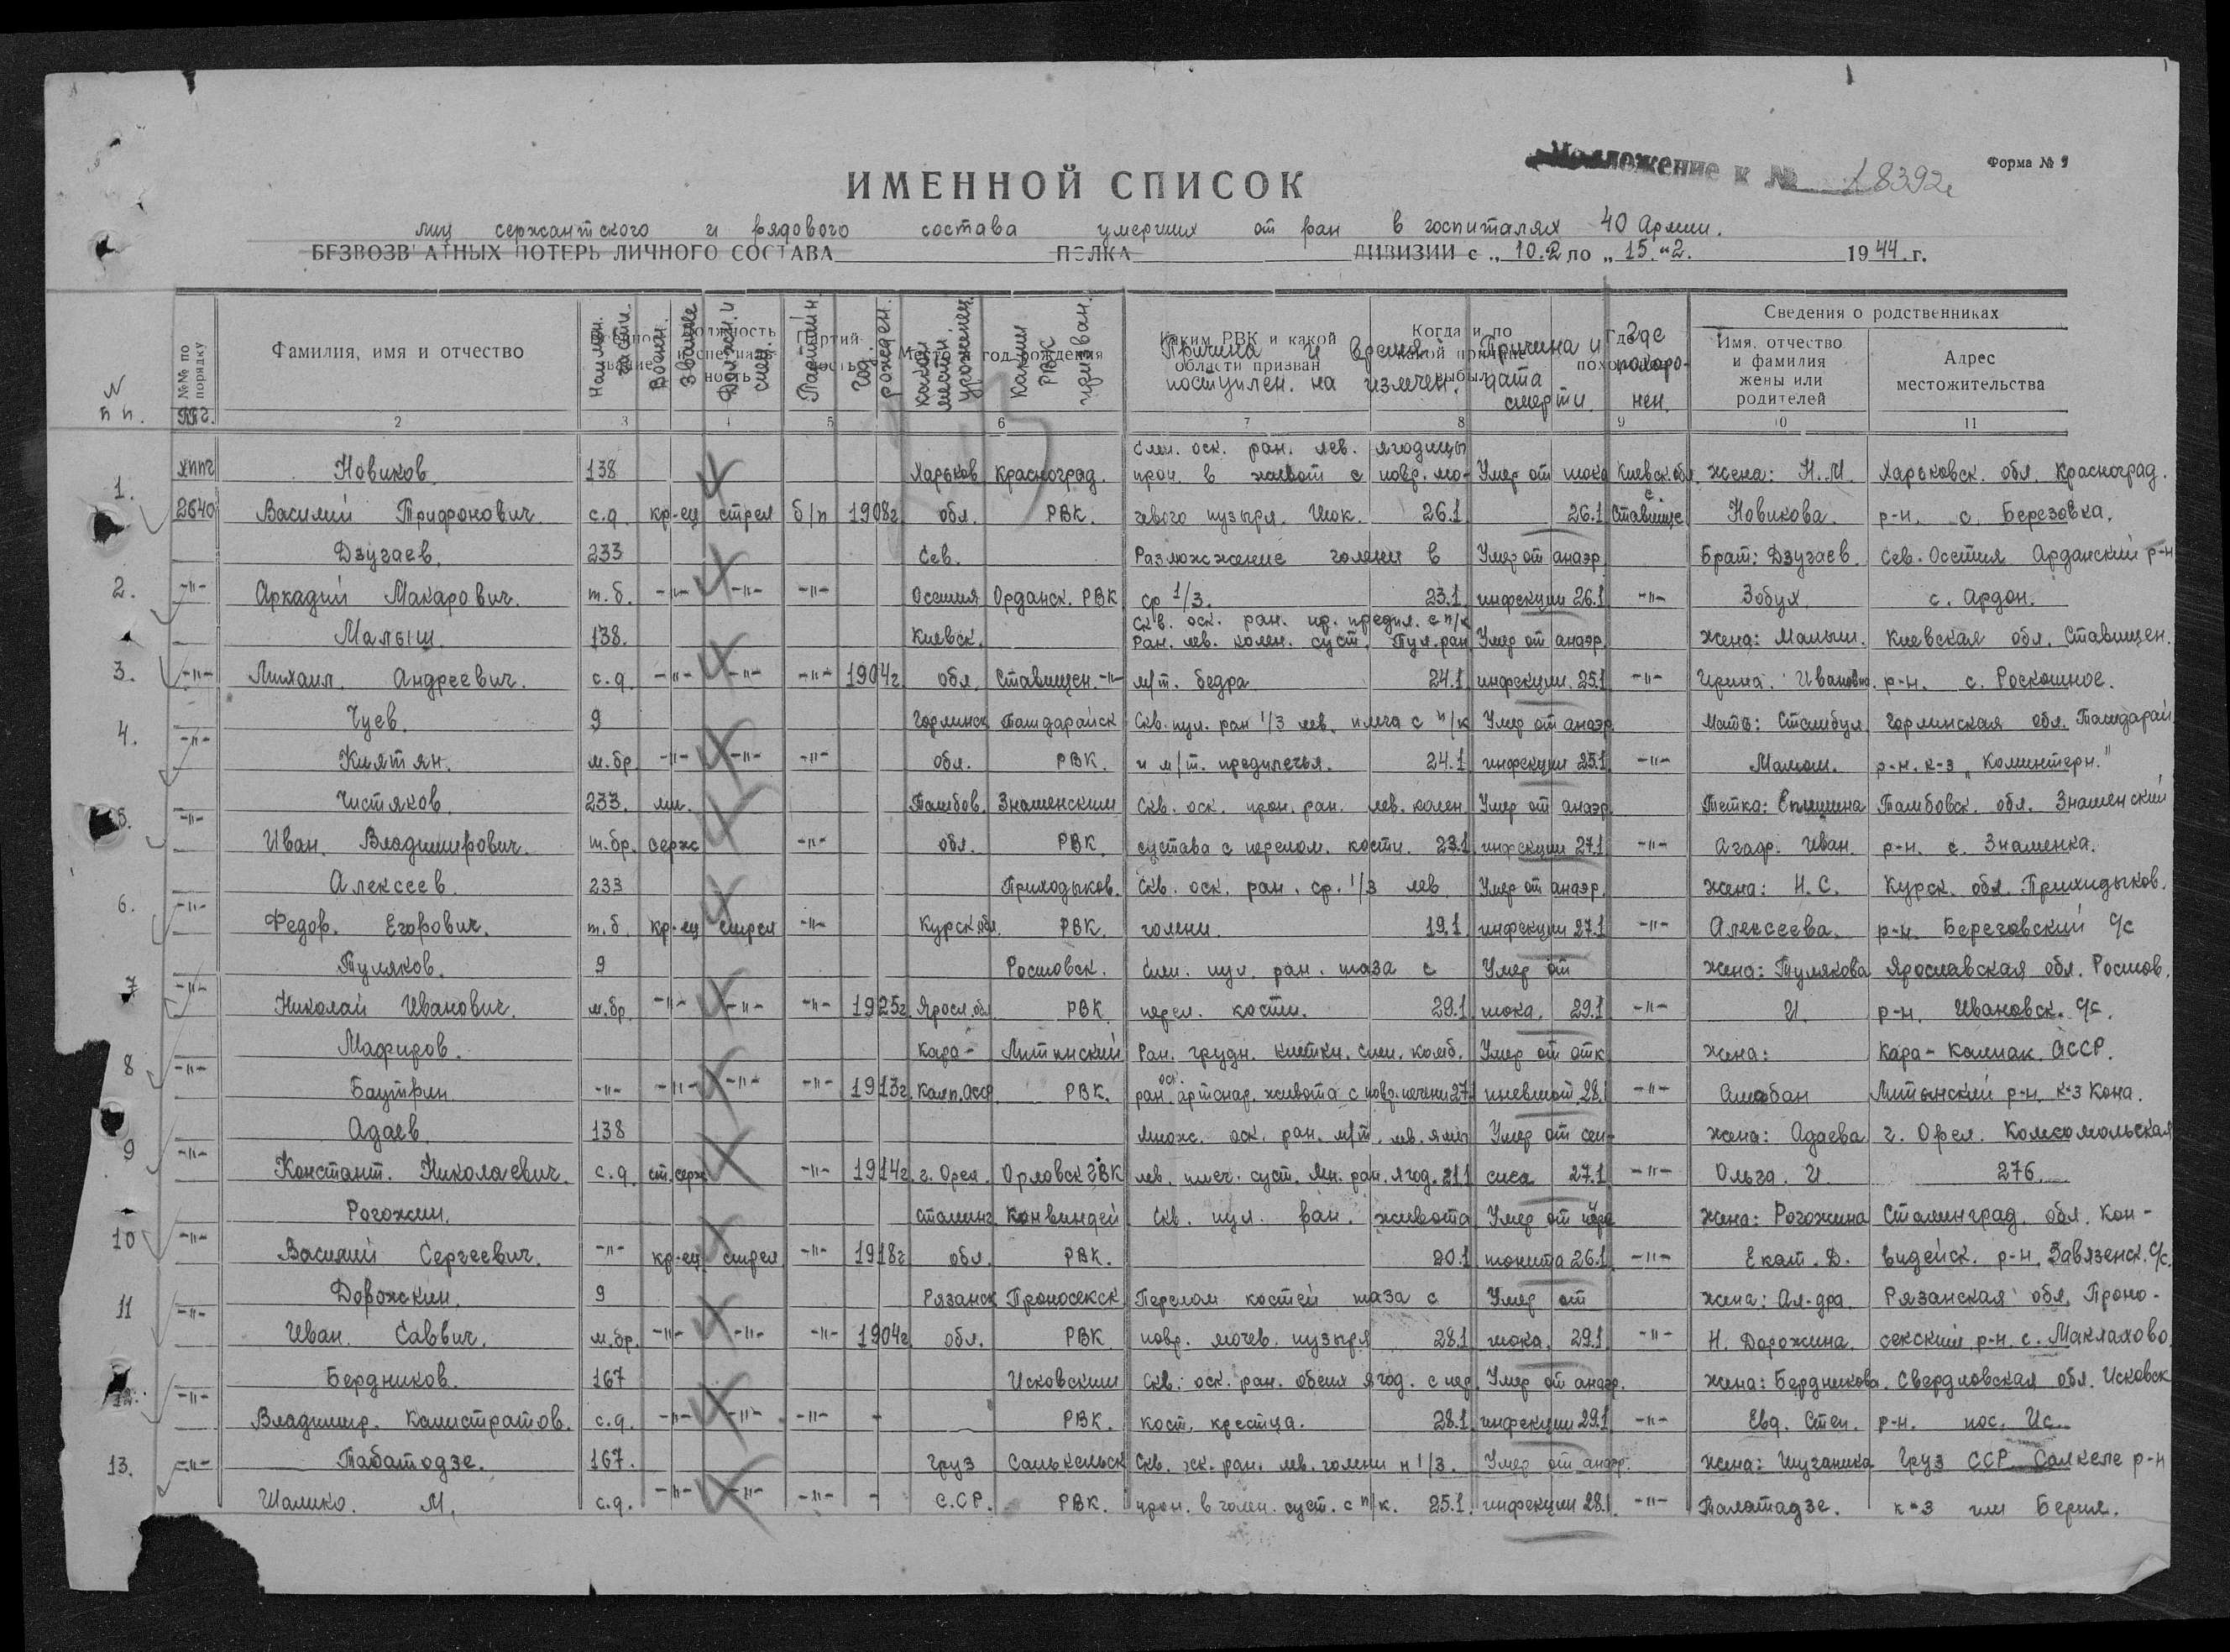 Приложение к № 18392с
Форма № 9
ИМЕННОЙ СПИСОК
лиц сержантского и рядового состава умерших от ран в госпиталях 40 Армии.
БЕЗВОЗВ АТНЫХ ПОТЕРЬ ЛИЧНОГО СОСТАВА ПОЛКА ДИВИЗИИ с „ 10.2 по „ 15."2. 1944. г.
N п п. №№ по порядку Фамилия, имя и отчество Наимен. части. Воен. звание Должн. и спец. Партийн. Год рожден. Какой местн. уроженец. Каким РВК призван. Причина и время поступлен. на излечен. Причина и дата смерти. Где похоро-нен. Сведения о родственниках
Имя, отчество и фамилия жены или родителей Адрес местожительства
2 3 4 5 6 7 8 9 10 11
Слеп. оск. ран. лев. ягодицы
1. хппг Новиков. 138 Харьков Красноград. прон. в живот с повр. мо- Умер от шока Киевск. обл. жена: Н.И. Харьковск. обл. Красноград.
2640 Василий Трифонович. с.д. кр-ец стрел б/п 1908г обл. РВК. чевого пузыря. Шок. 26.1 26.1 с Ставище Новикова. р-н. с. Березовка.
Дзугаев. 233 Сев. Размозжение голени в Умер от анаэр. Брат: Дзугаев. Сев. Осетия Ардонский р-н
2. -"- Аркадий Макарович. т.б. -"- -"- -"- Осетия Орданск. РВК ср 1/3. 23.1 инфекции 26.1 -"- Зобул. с. Ардон.
Скв. оск. ран. пр. предпл. с п/к
Малыш. 138. Киевск. Ран. лев. колен. суст. Пул. ран Умер от анаэр. жена: Малыш. Киевская обл. Ставищен.
3. -"- Михаил. Андреевич. с.д. -"- -"- -"- 1904г. обл. Ставищен. -"- м/т. бедра 24.1 инфекции. 25.1 -"- Ирина. Ивановна. р-н. с. Роскошное.
4. -"- Чуев. 9 Горлинск Ташдарайск Скв. пул. ран 1/3 лев. плеча с п/к Умер от анаэр. Мать: Стамбул. Горлинская обл. Ташдарай
Киятян. м.бр. -"- -"- -"- обл. РВК. и м/т. предплечья. 24.1 инфекции 25.1 -"- Мамом. р-н. к-з „Коминтерн."
5. -"- Чистяков. 233. мл. Тамбов. Знаменским Скв. оск. прон. ран. лев. колен Умер от анаэр. Тетка: Епишина Тамбовск. обл. Знаменский
Иван. Владимирович. т.бр. серж -"- обл. РВК. сустава с перелом. кости. 23.1 инфекции 27.1 -"- Агафр. Иван. р-н. с. Знаменка.
Алексеев. 233 Приходьков. Скв. оск. ран. ср. 1/3 лев Умер от анаэр. жена: Н.С. Курск. обл. Прихидьков.
6. -"- Федор. Егорович. т.б. кр-ец стрел -"- Курск обл. РВК. голени. 19.1 инфекции 27.1 -"- Алексеева. р-н. Береговский с/с
Туляков. 9 Ростовск. Слеп. пул. ран. таза с Умер от жена: Тулякова Ярославская обл. Ростов.
7 -"- Николай Иванович. м.бр. -"- -"- -"- 1925г. Яросл. обл. РВК. перел. кости. 29.1 шока. 29.1 -"- И. р-н. Ивановск. с/с.
8 -"- Мафиров. Кара- Литинский Ран. грудн. клетки. слеп. комб. Умер от отк жена: Кара-Калпак. АССР.
Баутрин -"- -"- -"- -"- 1913г. Калп. Асср. РВК. ран. оск. арт снар. живота с повр. печени 27.1 пневмот. 28.1 -"- Амабан Литынский р-н. к-з Кона.
Адаев. 138 Множ. оск. ран. м/т. лев. ямы Умер от сеп- жена: Адаева г. Орел. Комсомольская
9 -"- Констант. Николаевич. с.д. ст. серж -"- 1914г. г. Орел. Орловск ГВК лев. плеч. суст. Мн. ран. ягод. 21.1 сиса 27.1 -"- Ольга. И. 276.
Рогожин. Сталинг. Конвиндей Скв. пул. ран. живота Умер от пери жена: Рогожина Сталинград. обл. Кон-
10 -"- Василий Сергеевич. -"- кр-ец стрел -"- 1918г обл. РВК. 20.1 тонита 26.1 -"- Екат. Д. видейск. р-н. Завязенск. с/с.
Дорожкин. 9 Рязанск Проносекск Перелом костей таза с Умер от жена: Ал-дра. Рязанская обл. Проно-
11 -"- Иван. Саввич. м.бр. -"- -"- -"- 1904г. обл. РВК повр. мочев. пузыря 28.1 шока. 29.1 -"- Н. Дорожина. секский р-н. с. Маклахово.
Бердников. 167 Исковским Скв: оск. ран. обеих ягод. с пер. Умер от анаэр. жена: Бердникова. Свердловская обл. Исковск
12. -"- Владимир. Калистратов. с.д. -"- -"- -"- - РВК. кост. крестца. 28.1 инфекции 29.1 -"- Евд. Степ. р-н. пос. Ис.
13. -"- Табатодзе. 167. Груз Салькельск Скв. оск. ран. лев. голени н 1/3. Умер от анаэр. жена: Шуганика Груз ССР. Салкеле р-н
Шалико. М. с.д. -"- -"- -"- - С.СР. РВК. прон. в голен. суст. с п/к. 25.1. инфекции 28.1. -"- Талатадзе. к-з им Берия.